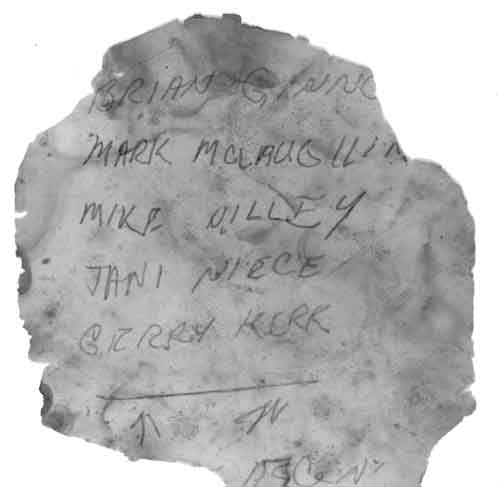 BRIAN GINNO
MARK MCLAUGHLIN
MIKE DILLEY
JANI NIECE
GERRY KERK